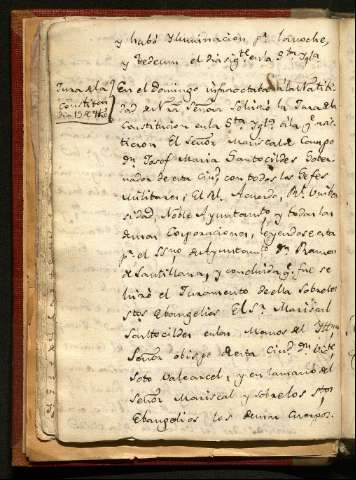 y hubo Yluminacion pr. la noche,
y tedeum el dia sigte. en la Sta. Ygla.
Jura de la
Constitcn
En el Domingo infraoctava de la Nativi
dad de Nra. Señora se hizo la Jura de la
Constitucion en la Sta. Ygla. á la qe. asis
tieron El Señor Mariscal de Campo
Dn. Josef Maria Santocildes Gober
nador de esta Ciud. con todos los Gefes
Militares, El Rl. Acuerdo, Rl. Univer
sidad, Noble Ayuntamto. y todas las
demas Corporaciones, leyendose esta
pr. el Ssrio. de Ayuntamto. Dn. Ramon
de Santillana, y concluida qe. fue se
hizo el Juramento de ella sobre los
Stos. Evangelios El Sr. Mariscal
Santocildes en las Manos del Yllmo.
Señor obispo de esta Ciud. Dn. Victe.
Soto Valcarcel, y en las manos del
Señor Mariscal y sobre los Stos.
Evangelios los demas Cuerpos.